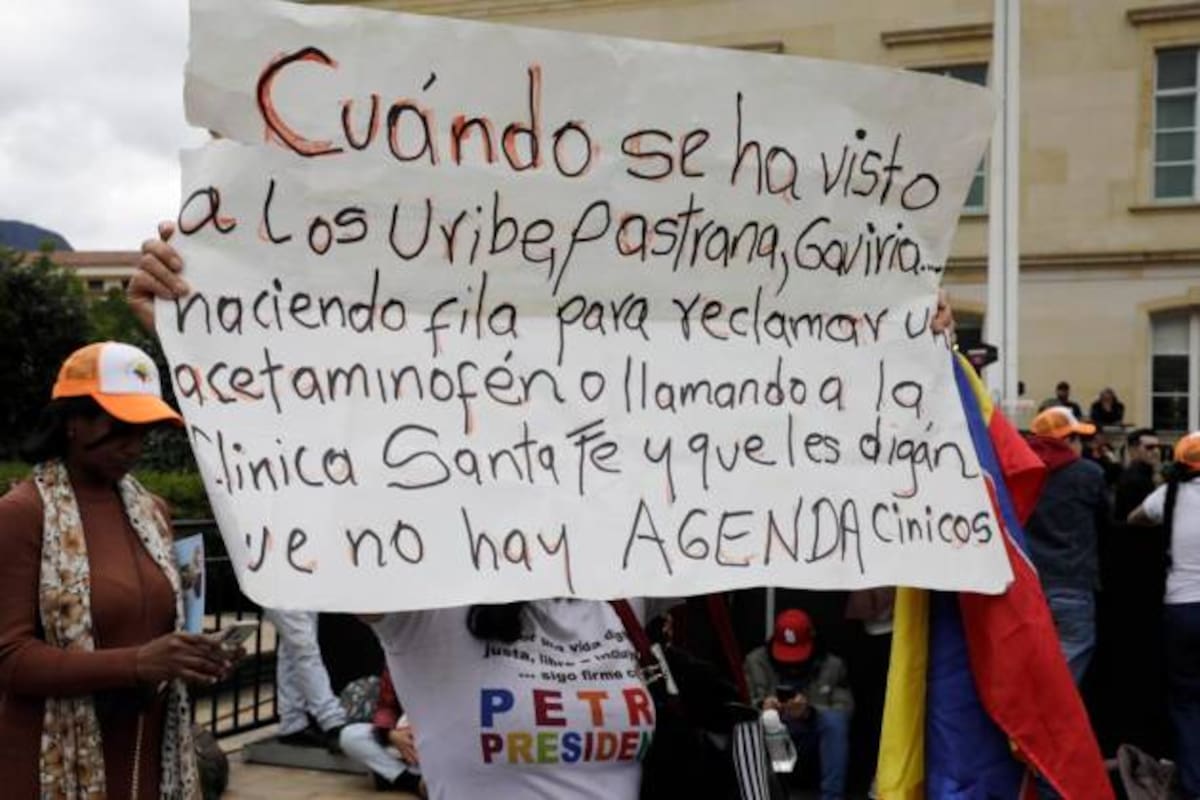 Cuándo se ha visto
a los Uribe, Pastrana, Gaviria...
haciendo fila para reclamar un
acetaminofén o llamando a la
Clinica Santa Fe y que les digán
que no hay AGENDA Cinicos
justa,
... sigo firme
PETR
PRESIDEN